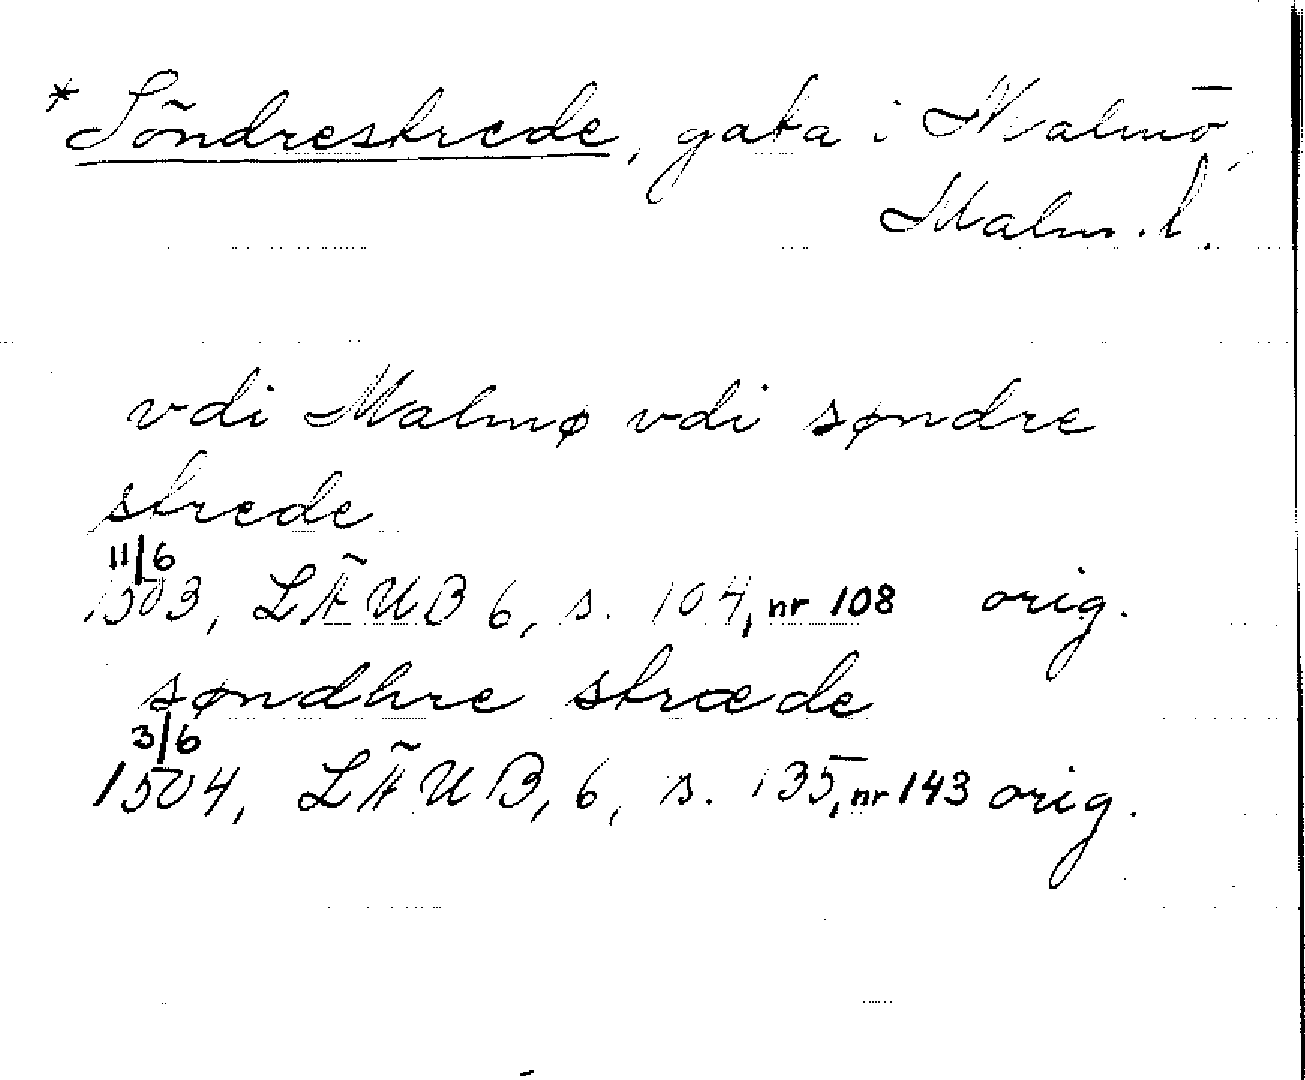 * Söndrestrede, gata i Malmö,
Malm. l.
vdi Malmø vdi søndre
strede
11/6
1503, LÄUB 6, s. 104, nr 108 orig.
søndhre stræde
3/6
1504, LÄUB, 6, s. 135, nr 143 orig.